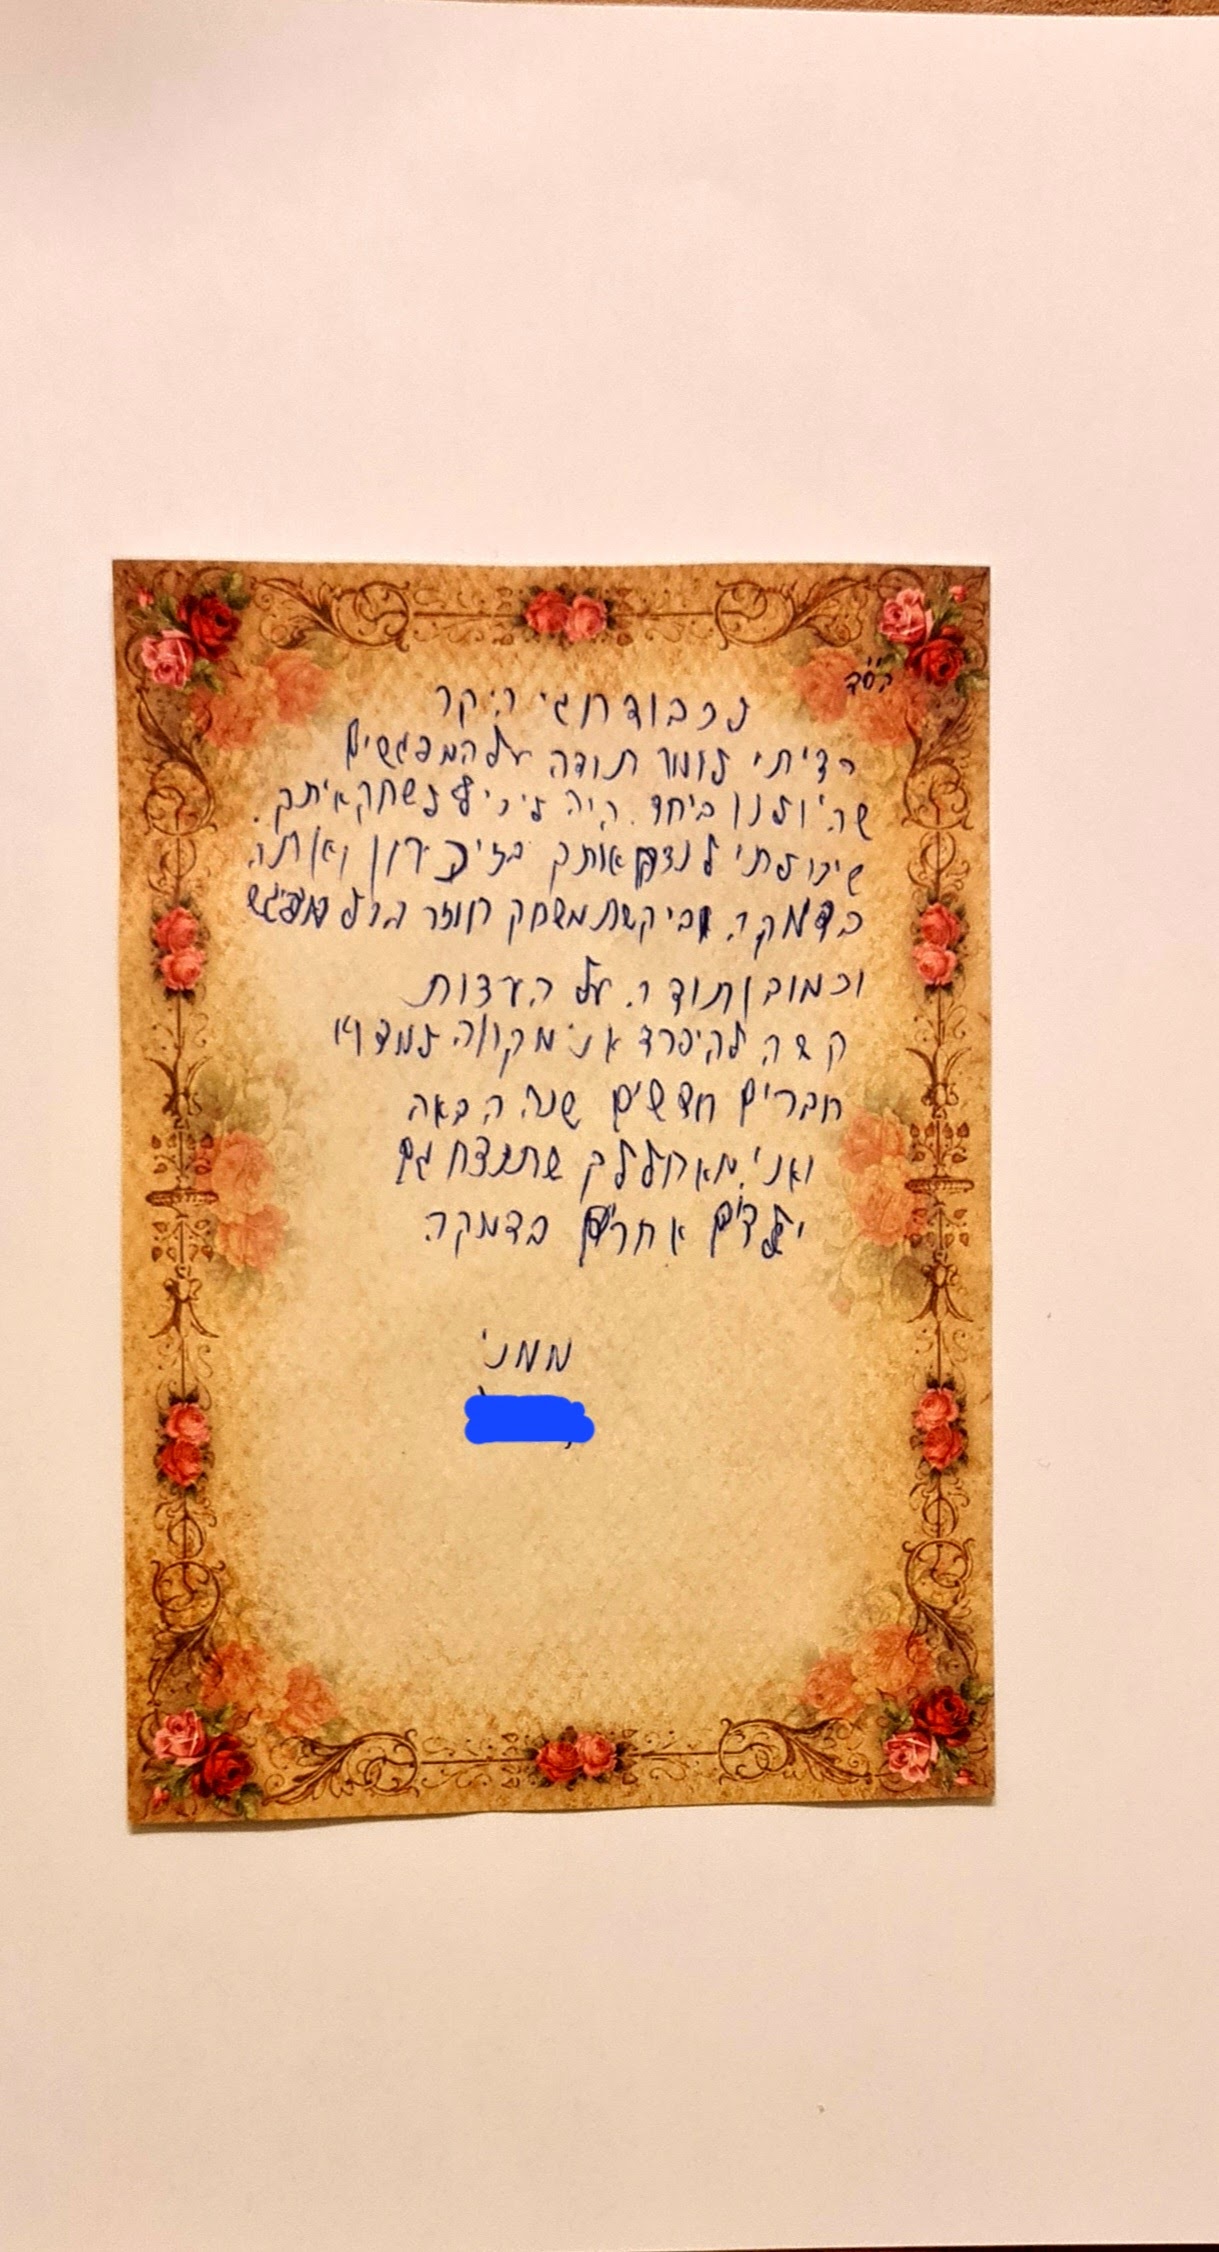 בס״ד
לכבוד חגי היקר
רציתי לומר תודה על המפגשים
שהיו לנו ביחד. היה לי כיף לשחק איתך.
שיכולתי לנצח אותך בזיכרון ואתה
בדמקה. וביקשת משחק חוזר בכל מפגש
וכמובן תודה. על העצות
קשה להיפרד אני מקווה
חברים חדשים שנה הבאה
ואני מאחל לך שתנצח גם
ילדים אחרים בדמקה.
ממני